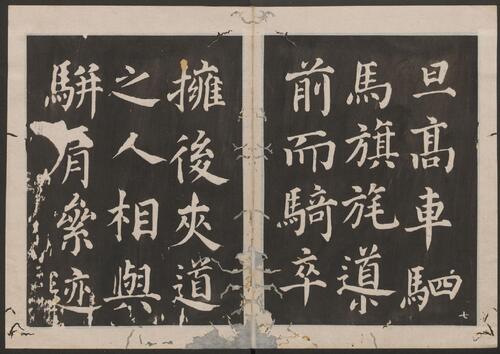 旦高車駟
馬旗旄導
前而騎卒
擁後夾道
之人相與
駢肩纍迹
七